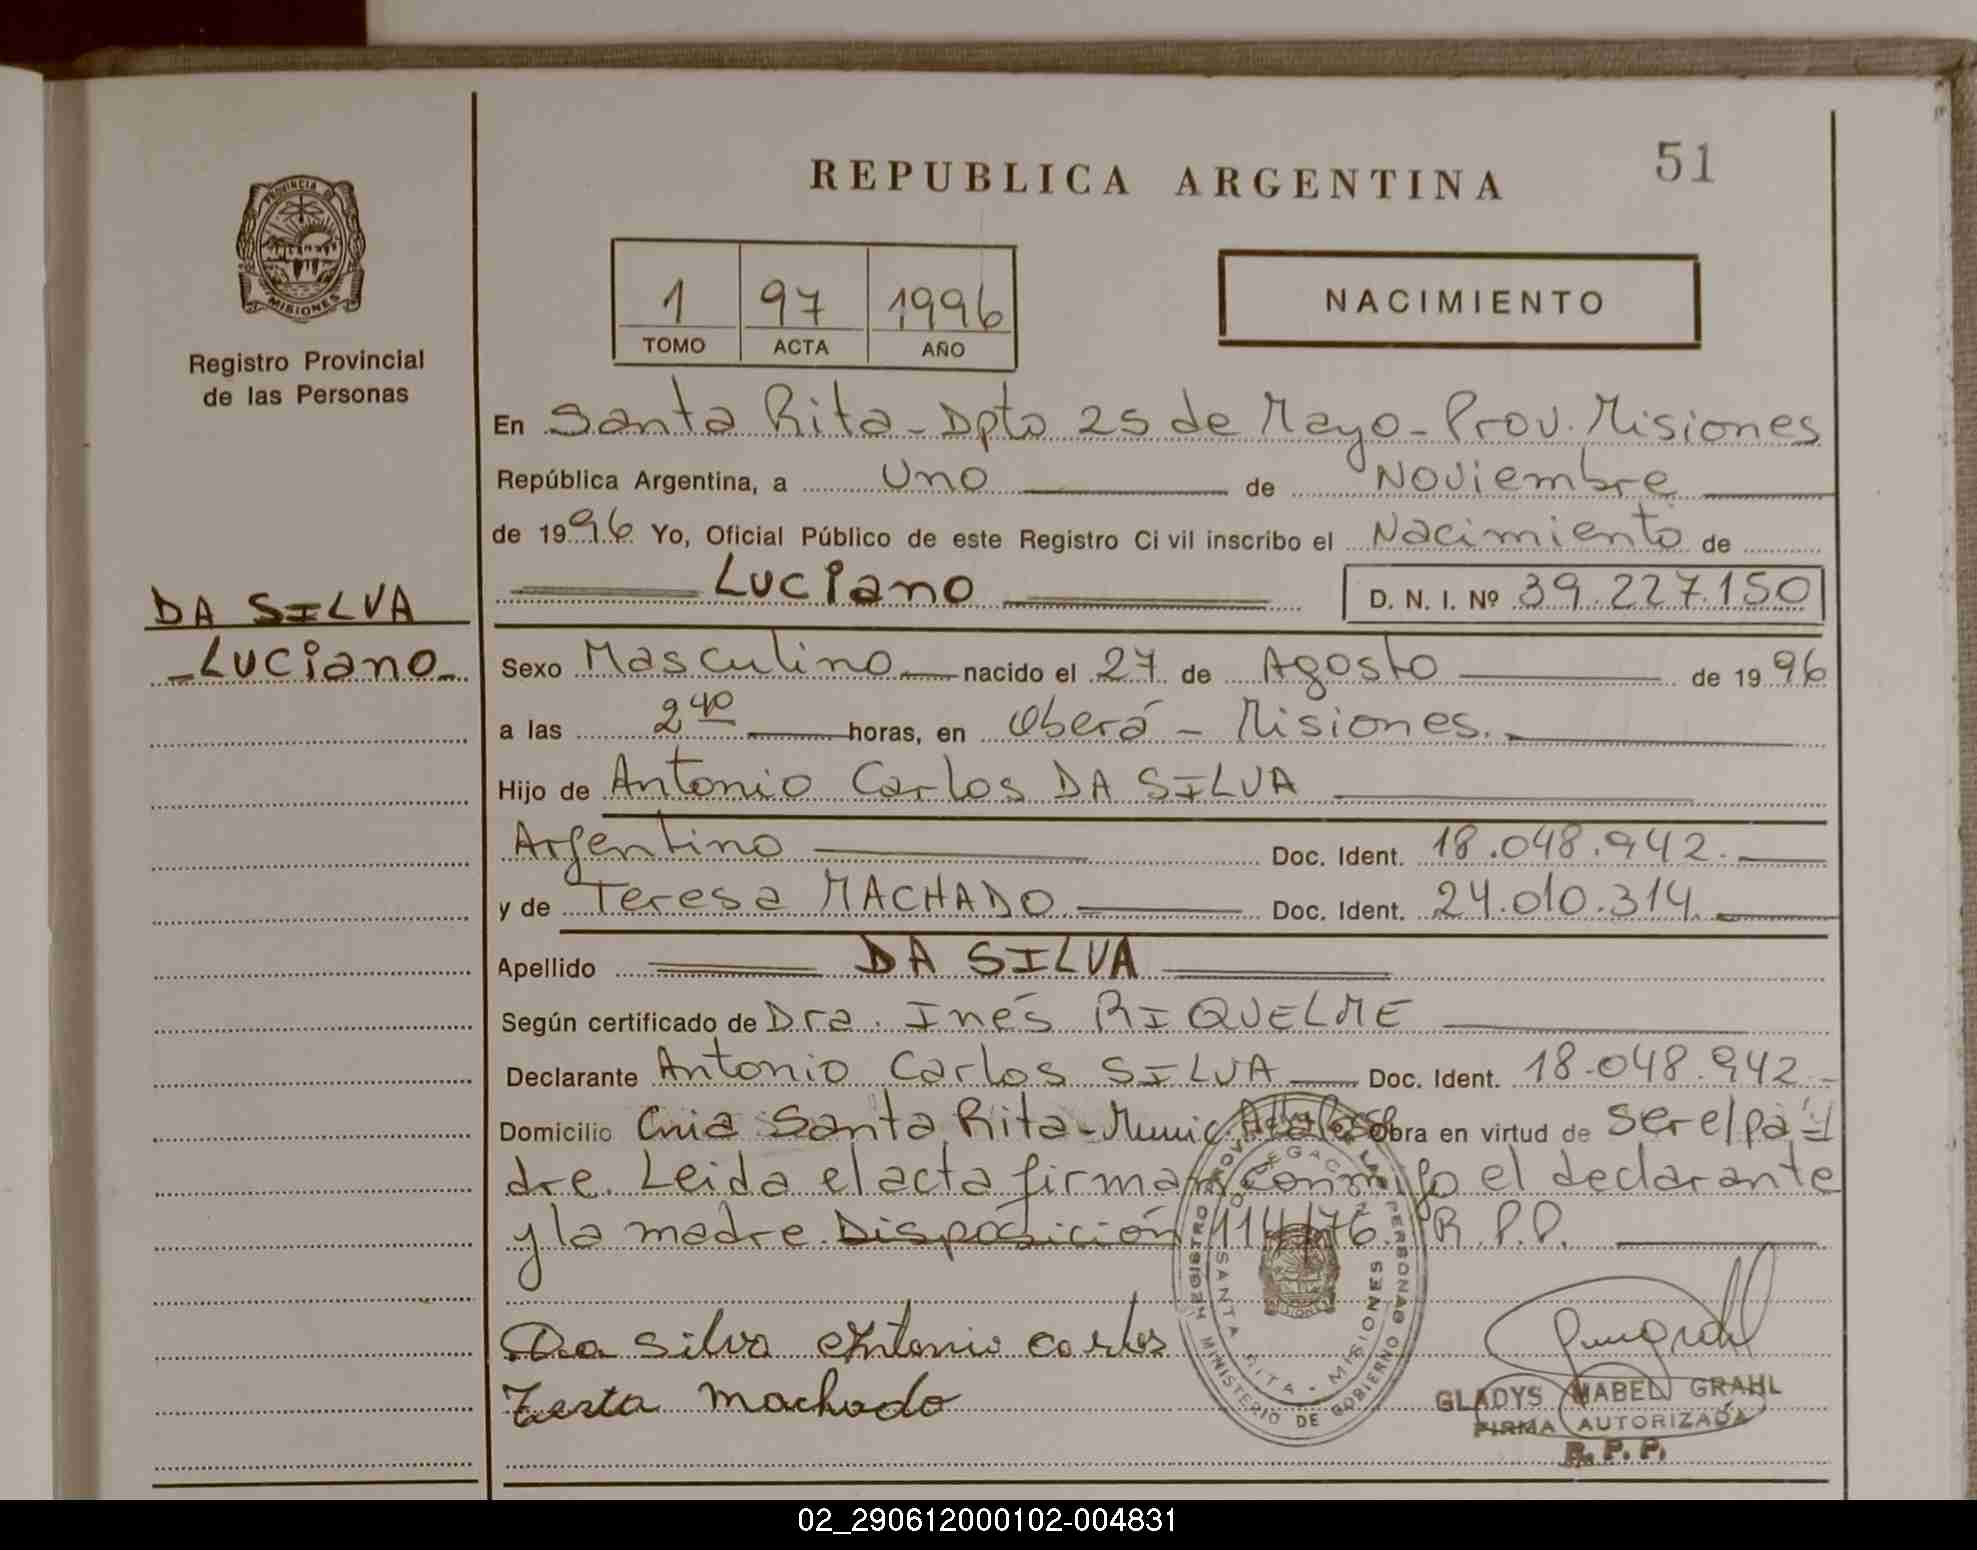 51
REPUBLICA ARGENTINA
PROVINCIA DE
MISIONES
Registro Provincial
de las Personas
1 97 1996
TOMO ACTA AÑO
NACIMIENTO
En Santa Rita - Dpto 25 de Mayo - Prov. Misiones
República Argentina, a Uno de Noviembre
de 1996 Yo, Oficial Público de este Registro Civil inscribo el Nacimiento de
Luciano D. N. I. Nº 39.227.150
DA SILVA
- Luciano -
Sexo Masculino nacido el 27 de Agosto de 1996
a las 2 40 horas, en Oberá - Misiones.
Hijo de Antonio Carlos DA SILVA
Argentino Doc. Ident. 18.048.942.
y de Teresa MACHADO Doc. Ident. 24.010.314
Apellido DA SILVA
Según certificado de Dra. Inés RIQUELME
Declarante Antonio Carlos SILVA Doc. Ident. 18.048.942 -
Domicilio Cnia Santa Rita - Munic. Obra en virtud de ser el pa
dre. Leida el acta firman conmigo el declarante
y la madre. Disposición 114/76. R.P.P.
REGISTRO PROV. LAS PERSONAS
DELEGACION
SANTA RITA - MISIONES
MINISTERIO DE GOBIERNO
Da Silva Antonio Carlos
machado
GLADYS MABEL GRAHL
FIRMA AUTORIZADA
R. P. P.
02_290612000102-004831